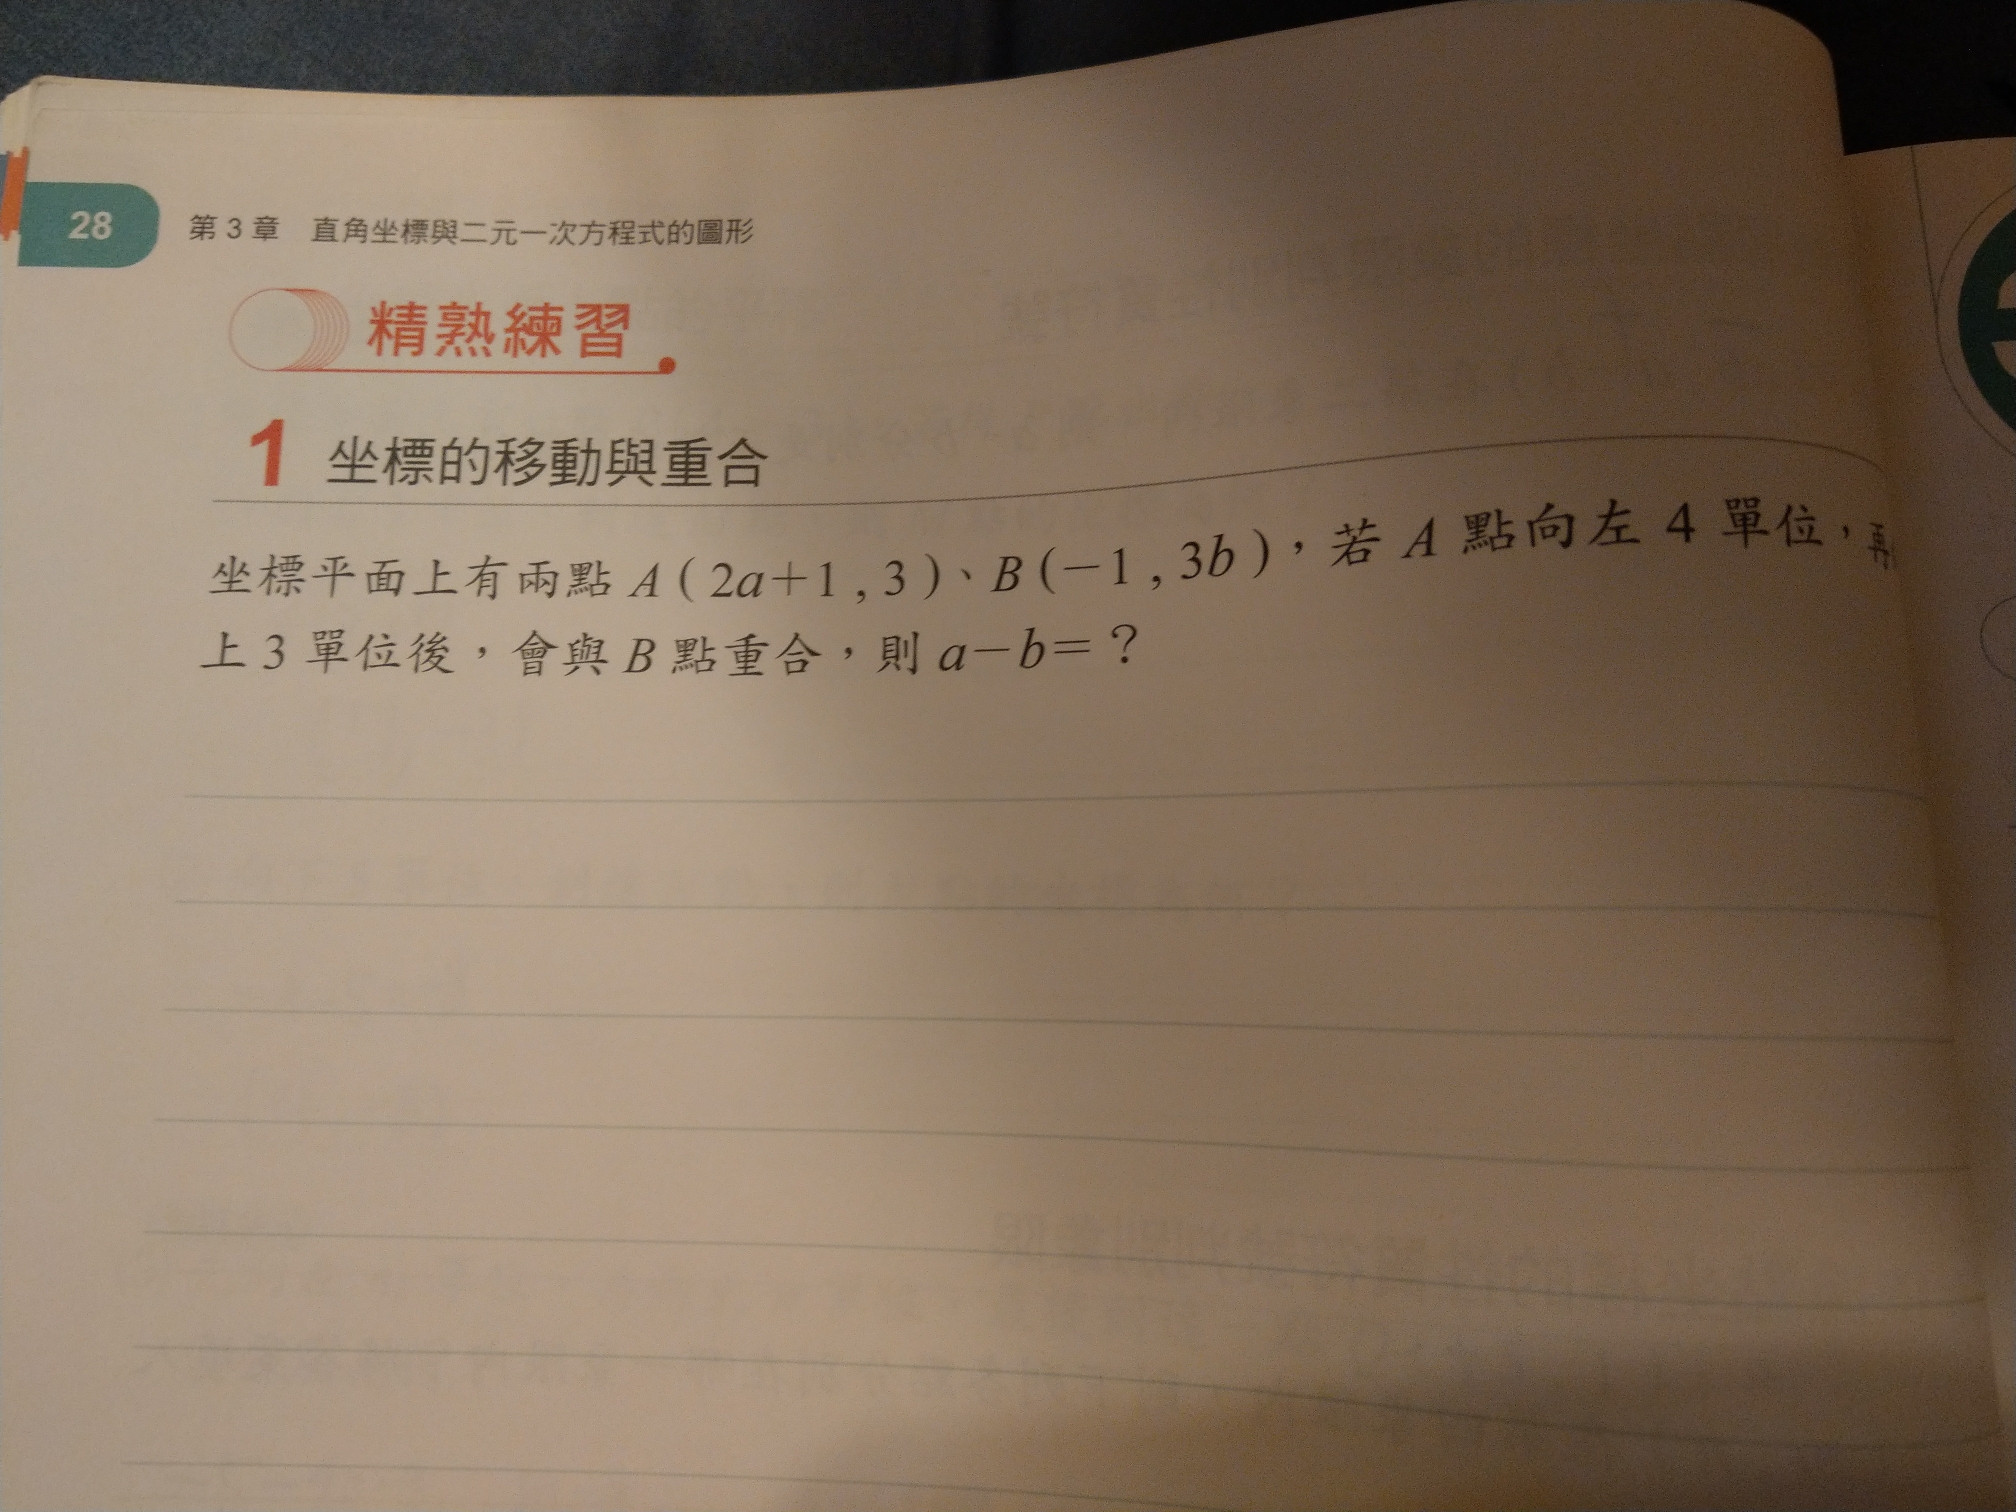 28 第 3 章 直角坐標與二元一次方程式的圖形
精熟練習
1 坐標的移動與重合
坐標平面上有兩點 A ( 2a+1 , 3 )、B (-1 , 3b )，若 A 點向左 4 單位，再
上 3 單位後，會與 B 點重合，則 a-b=？